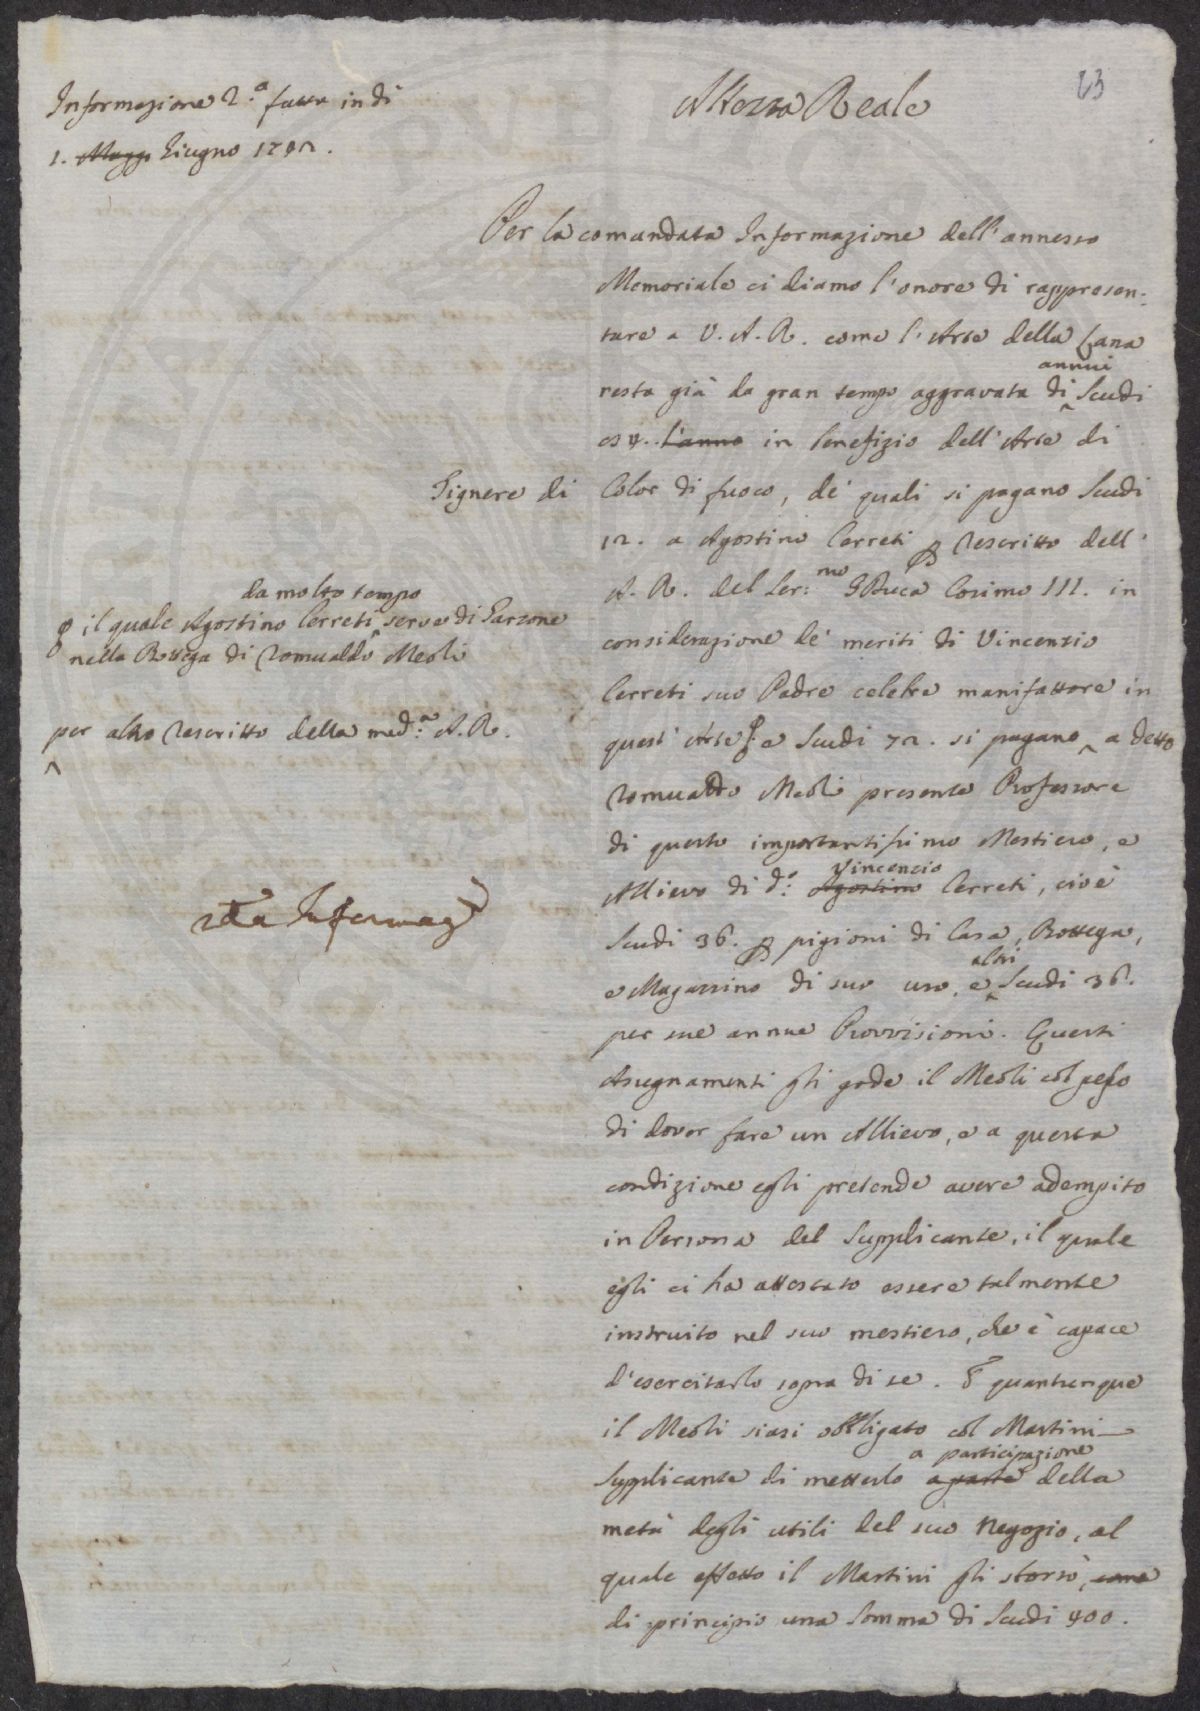 23
Informazione 2.a fatta in di
1. Maggo Giugno 1742.
Altezza Reale
Per la comandata Informazione dell'annesso
Memoriale ci diamo l'onore di rappresen:
tare a V. A. R. come l'Arte della Lana
annui
resta già da gran tempo aggravata di Scudi
84. l'anno in benefizio dell'Arte di
Tignere di
Color di fuoco, de' quali si pagano Scudi
12. a Agostino Cerreti p rescritto dell'
A. R. del Ser:mo GDuca Cosimo III. in
da molto tempo
il quale Agostino Cerreti serve di Garzone
nella Bottega di Romualdo Meoli
considerazione de' meriti di Vincenzio
Cerreti suo Padre celebre manifattore in
per altro rescritto della med:a A. R.
quest'Arte e Scudi 72. si pagano a detto
Romualdo Meoli presente Professore
di questo importantissimo Mestiero, e
Vincenzio
Allievo di d:o Agostino Cerreti, cioè
Scudi 36. p pigioni di Casa, Bottega,
altri
e Magazzino di suo uso, e Scudi 36.
per sue annue Provvisioni. Questi
Assegnamenti gli gode il Meoli col peso
di dover fare un Allievo, e a questa
condizione egli pretende avere adempito
in Persona del Supplicante, il quale
egli ci ha attestato essere talmente
instruito nel suo mestiero, che è capace
d'esercitarlo sopra di se. E quantunque
il Meoli siasi obbligato col Martini
a participazione
Supplicante di metterlo a parte della
metà degli utili del suo Negozio, al
quale effetto il Martini gli storsò, come
di principio una Somma di Scudi 400.